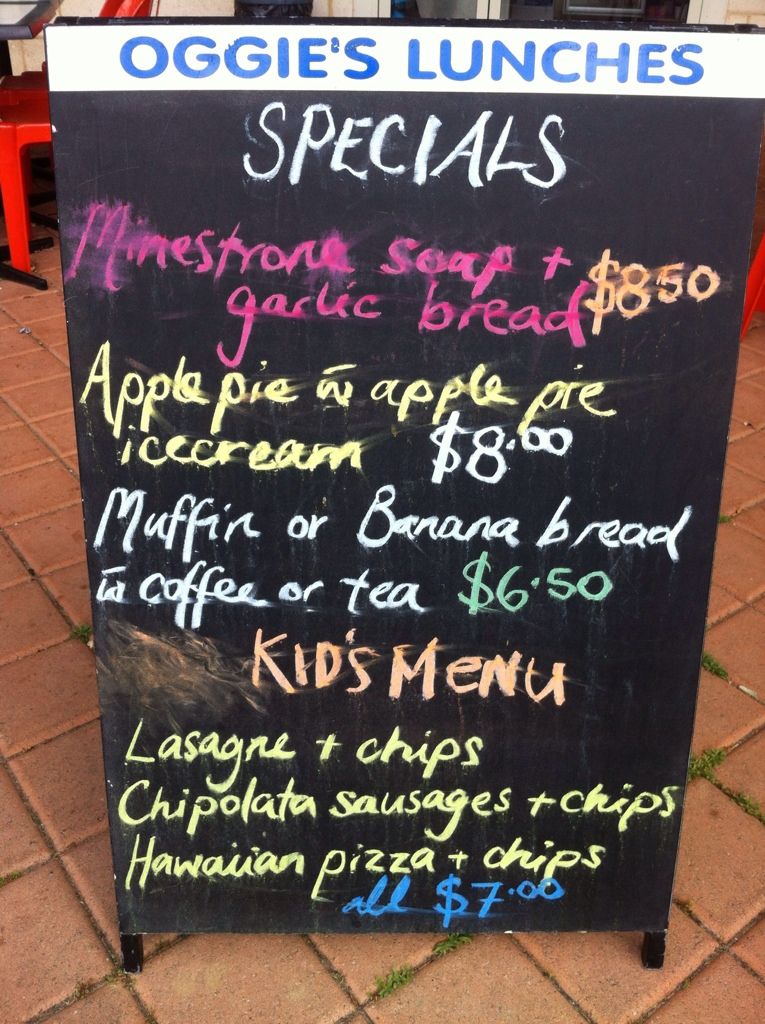 OGGIE'S LUNCHES
SPECIALS
Minestrone soap + $8.50
garlic bread
Apple pie w̄ apple pie
icecream $8.00
Muffin or Banana bread
w̄ coffee or tea $6.50
KID'S MENU
Lasagne + chips
Chipolata sausages + chips
Hawaiian pizza + chips
all $7.00